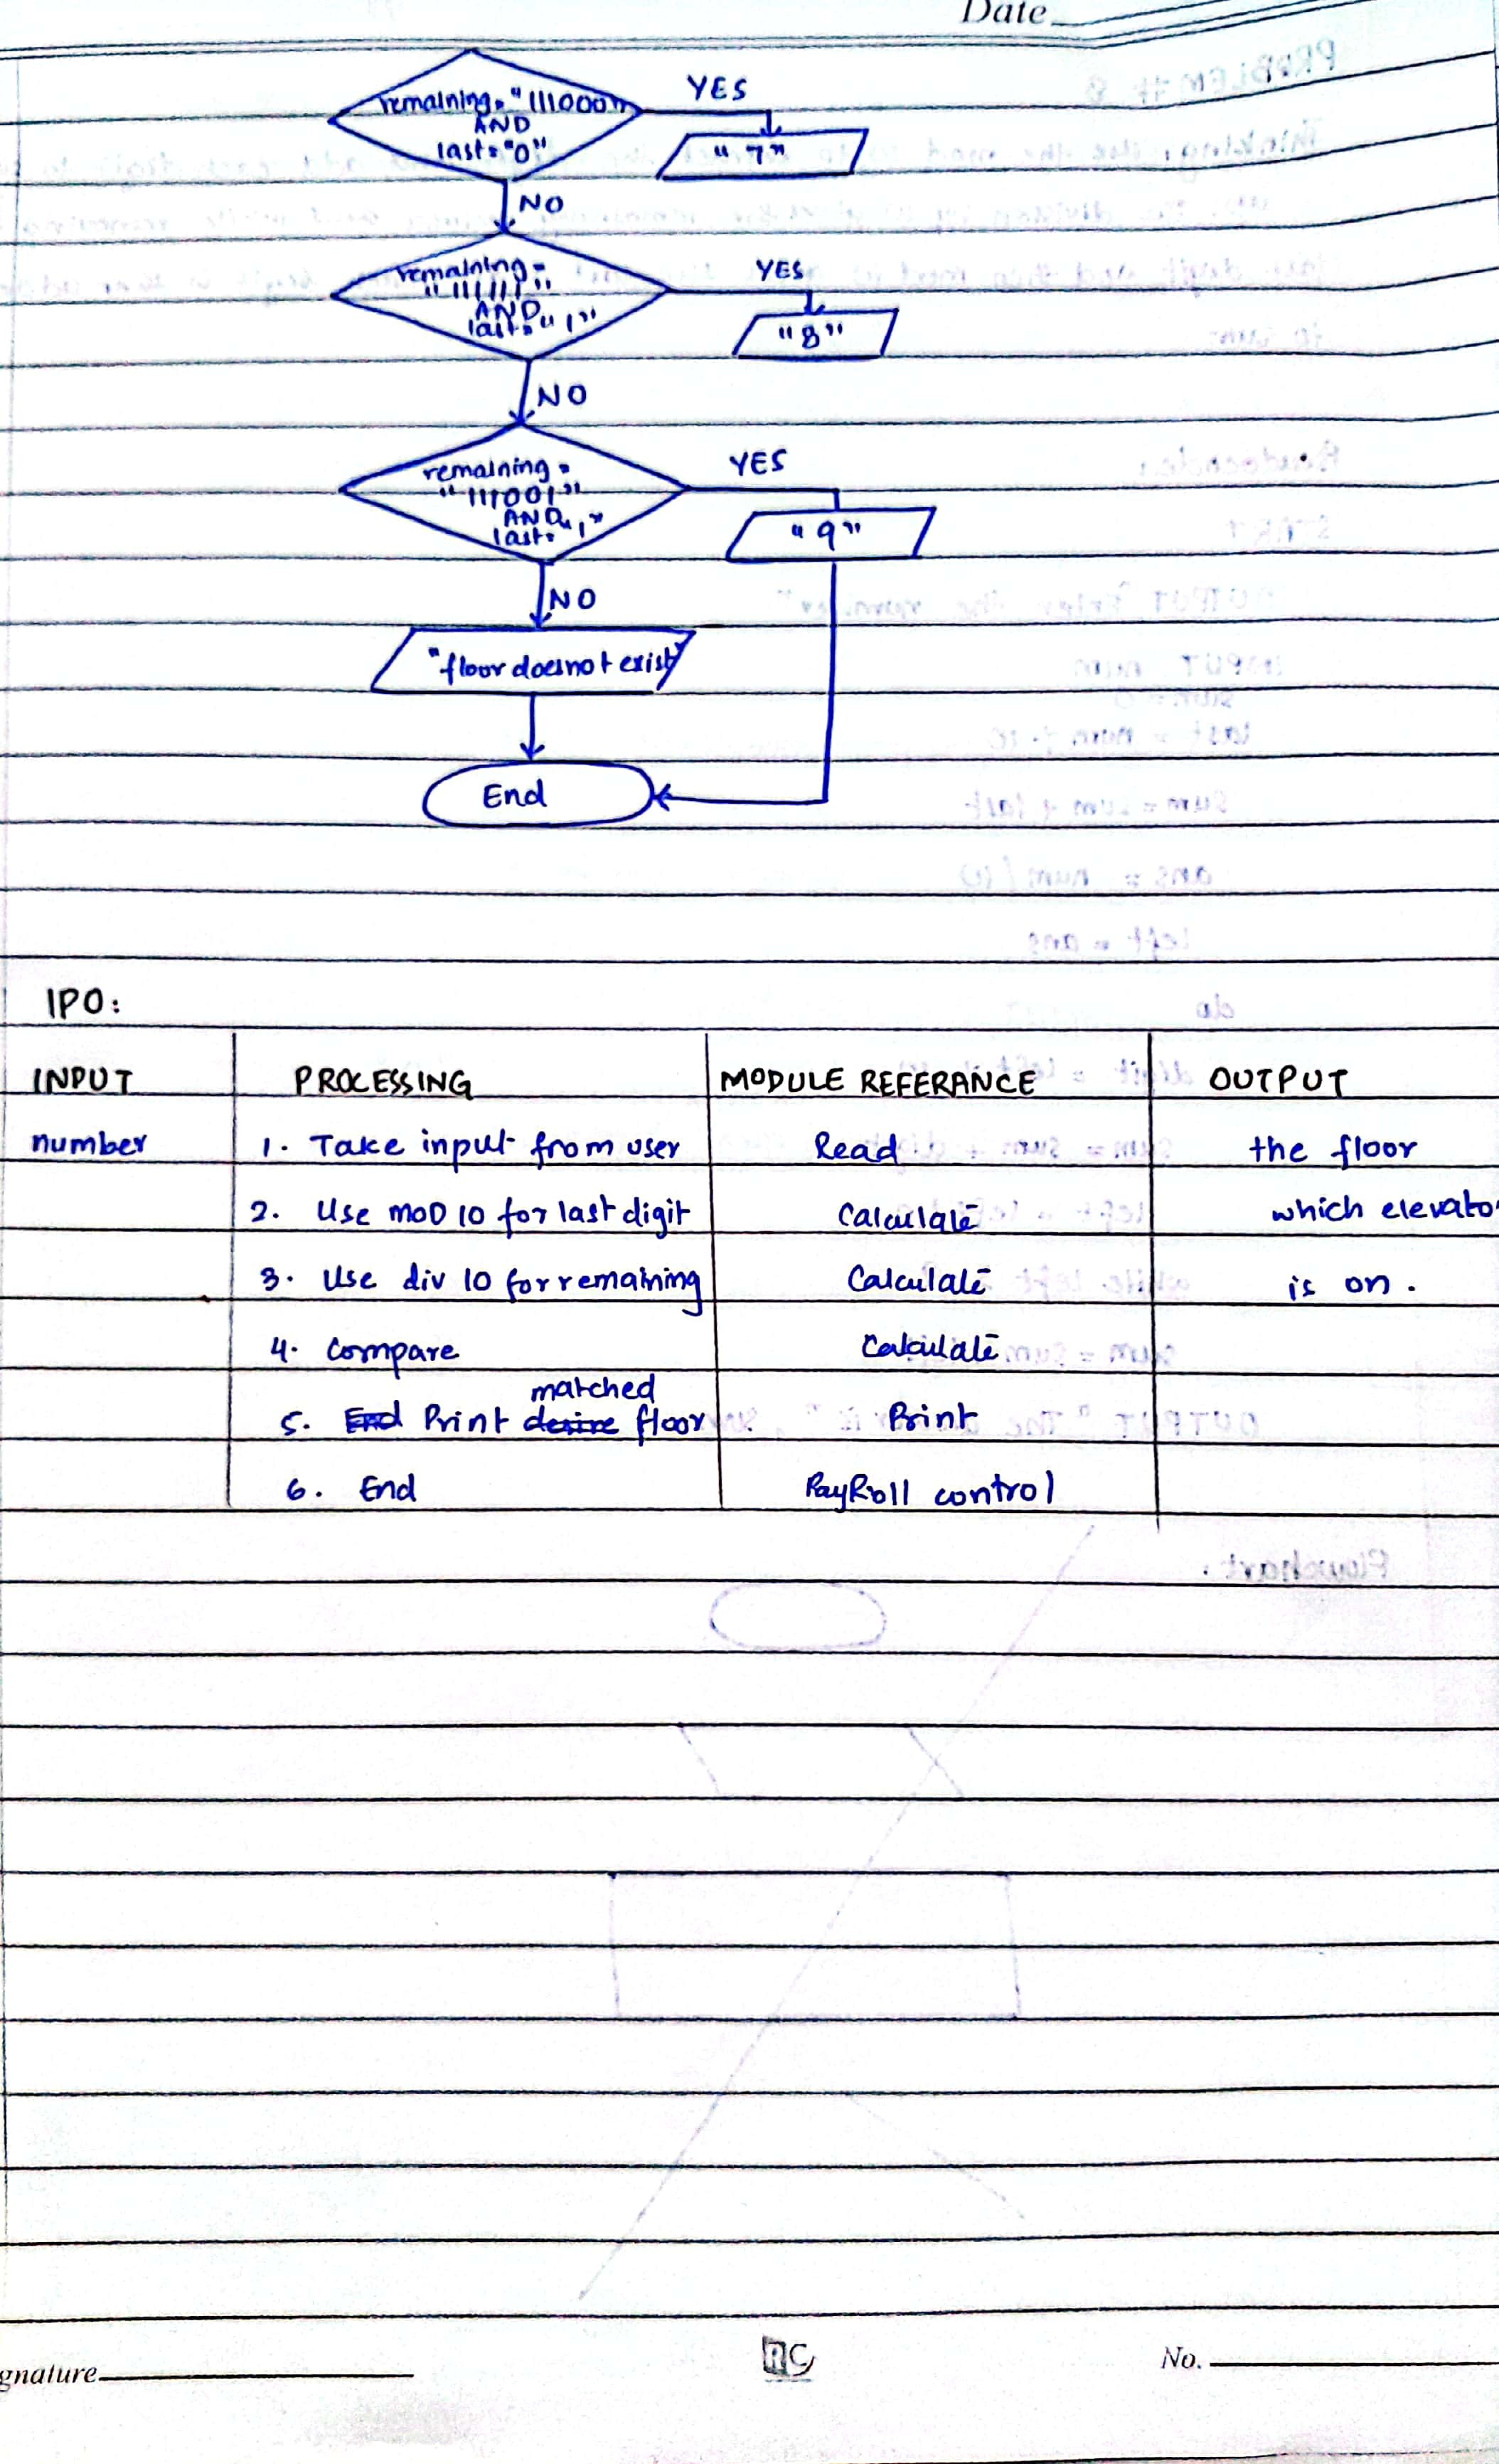 Date
remaining = "111000"
AND
last="0"
YES
"7"
NO
remaining =
"111111"
AND
last="1"
YES
"8"
NO
remaining =
"111001"
AND
last="1"
YES
"9"
NO
"floor does not exist"
End
IPO:
INPUT PROCESSING MODULE REFERANCE OUTPUT
number 1. Take input from user Read the floor
2. Use MOD 10 for last digit Calculate which elevato
3. Use div 10 for remaining Calculate is on.
4. Compare Calculate
matched
5. End Print desire floor Print
6. End PayRoll control
gnature
RC
No.